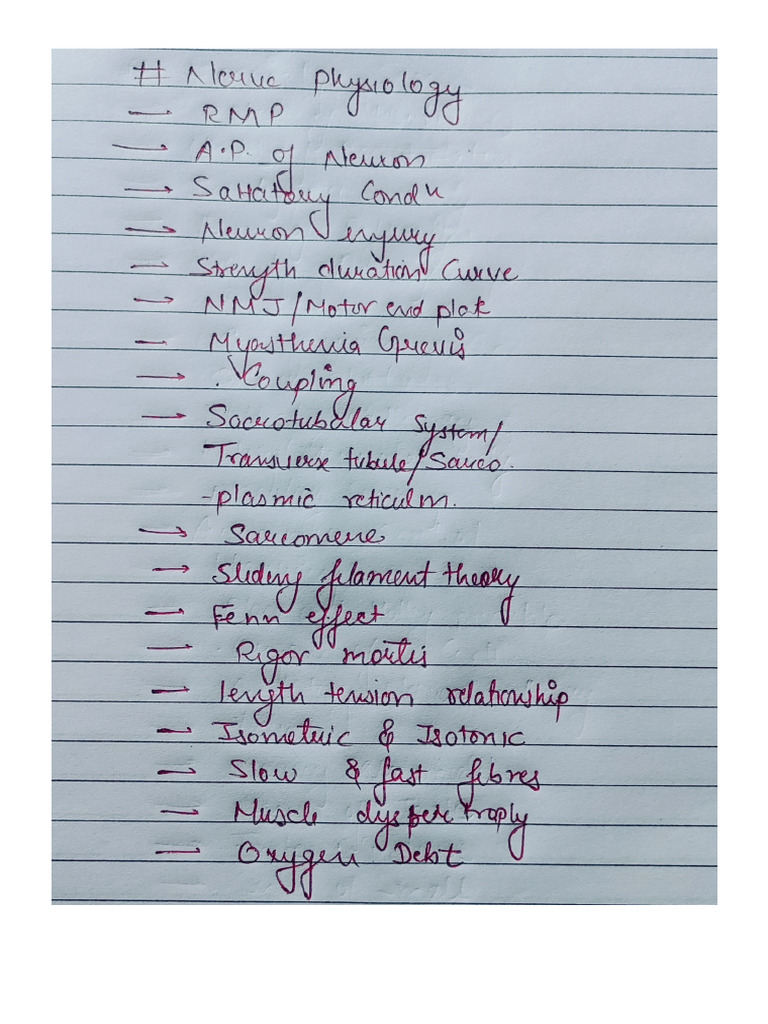 # Nerve Physiology
— RMP
→ A.P. of Neuron
→ Saltatory Condn
→ Neuron enjury
— Strength duration Curve
→ NMJ/Motor end plate
— Myasthenia Grevis
→ . Coupling
→ Sacrotubular System/
Transverse tubule/Sarco.
-plasmic reticulm.
→ Sarcomere
→ Sliding filament theory
— Fenn effect
— Rigor mortis
— length tension relationship
— Isometric & Isotonic
— Slow & fast fibres
— Muscle dys trophy
— Oxygen Debt